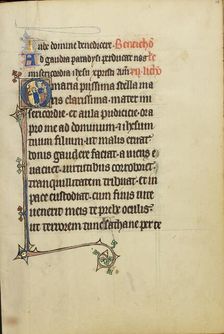 Iube domine benedicere. Benedictio
Ad gaudia paradysi perducat nos
misericordia ihesu xpristi Am
O maria piissima stella ma
ris clarissima. mater mi
sericordie et aula pudicicie. ora
pro me ad dominum et ihesum
filium tuum. ut malis erutat
bonis gaudere faciat. a viciis e
vacuet. virtutibus corroboret.
tranquillitatem tribuat. et in
pace custodiat. cum finis vite
venerit meis te prebe oculis.
ut terrorem tunc sathane per te